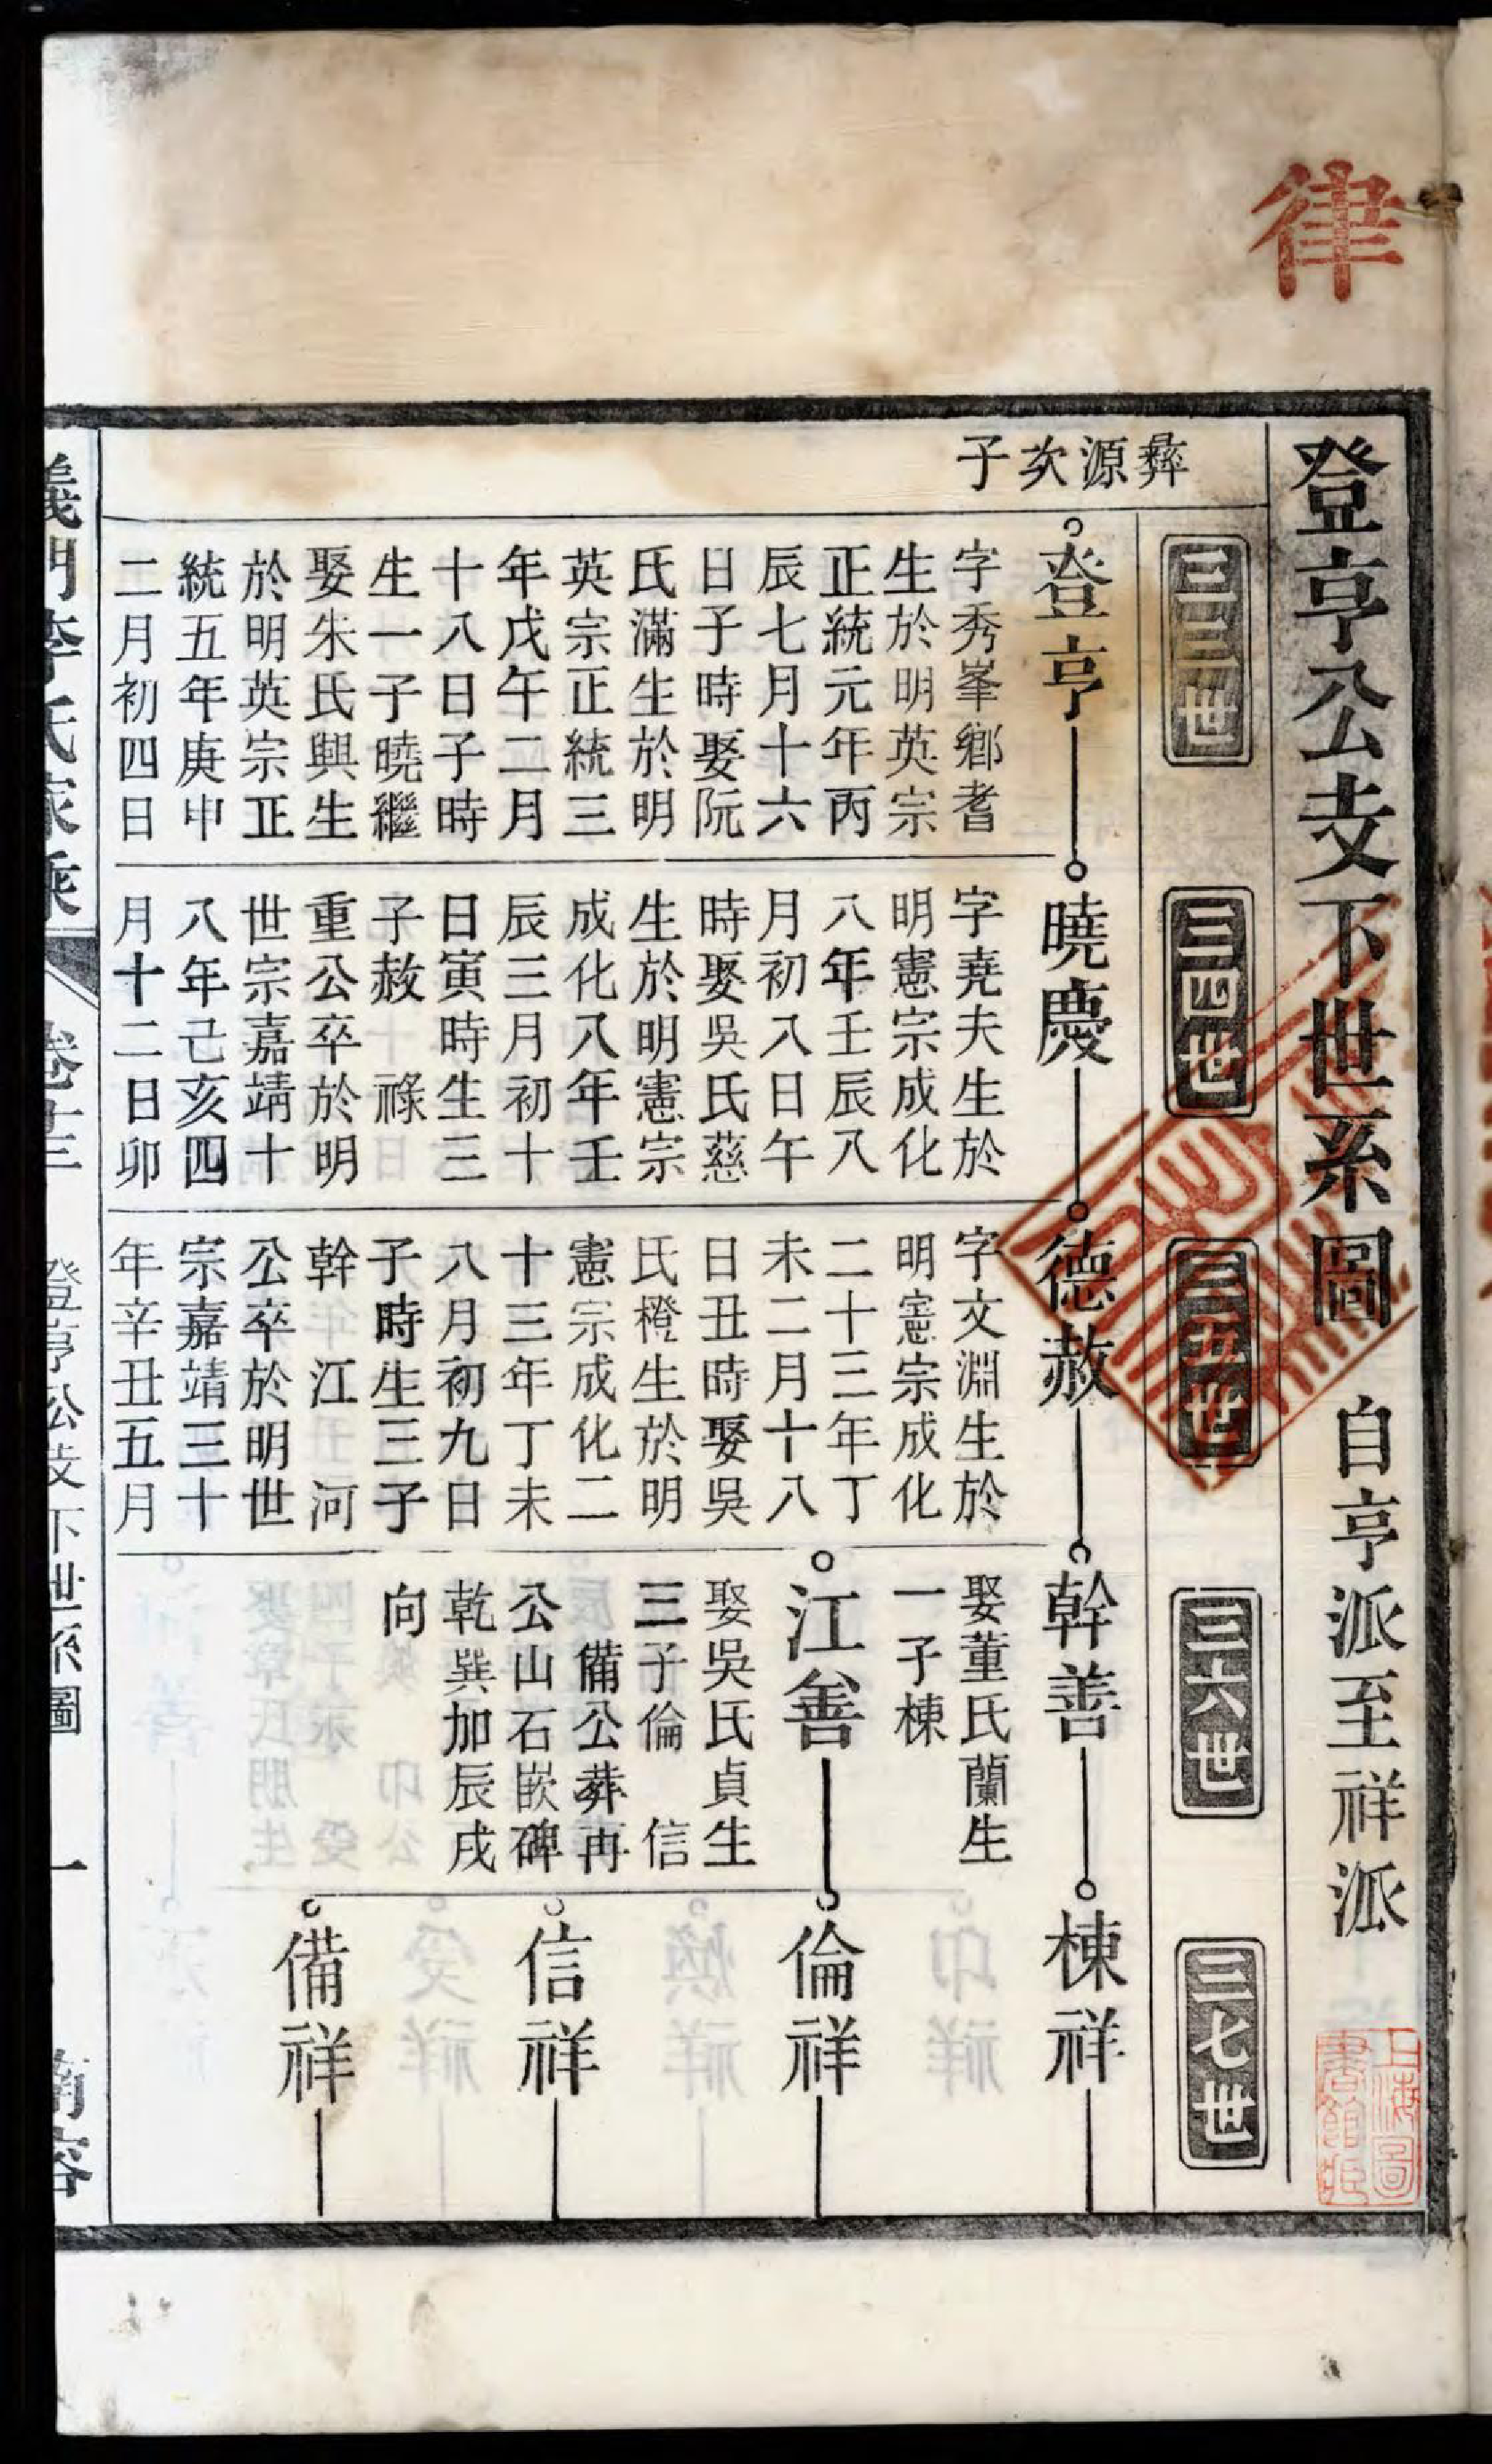 律
登亨公支下世系圖 自亨派至祥派
三三世
三四世
三五世
三六世
三七世
彝源次子
登亨
字秀峯鄉耆
生於明英宗
正統元年丙
辰七月十六
日子時娶阮
氏滿生於明
英宗正統三
年戊午二月
十八日子時
生一子曉繼
娶朱氏興生
於明英宗正
統五年庚申
二月初四日
曉慶
字堯夫生於
明憲宗成化
八年壬辰八
月初八日午
時娶吳氏慈
生於明憲宗
成化八年壬
辰三月初十
日寅時生三
子赦 祿
重公卒於明
世宗嘉靖十
八年己亥四
月十二日卯
德赦
字文淵生於
明憲宗成化
二十三年丁
未二月十八
日丑時娶吳
氏橙生於明
憲宗成化二
十三年丁未
八月初九日
子時生三子
幹 江 河
公卒於明世
宗嘉靖三十
年辛丑五月
幹善
娶董氏蘭生
一子棟
江善
娶吳氏貞生
三子倫 信
備公葬冉
公山石嵌碑
乾巽加辰戌
向
棟祥
倫祥
信祥
備祥
義門李氏家乘 卷十三 登亨公支下世系圖 一
上海圖書館藏